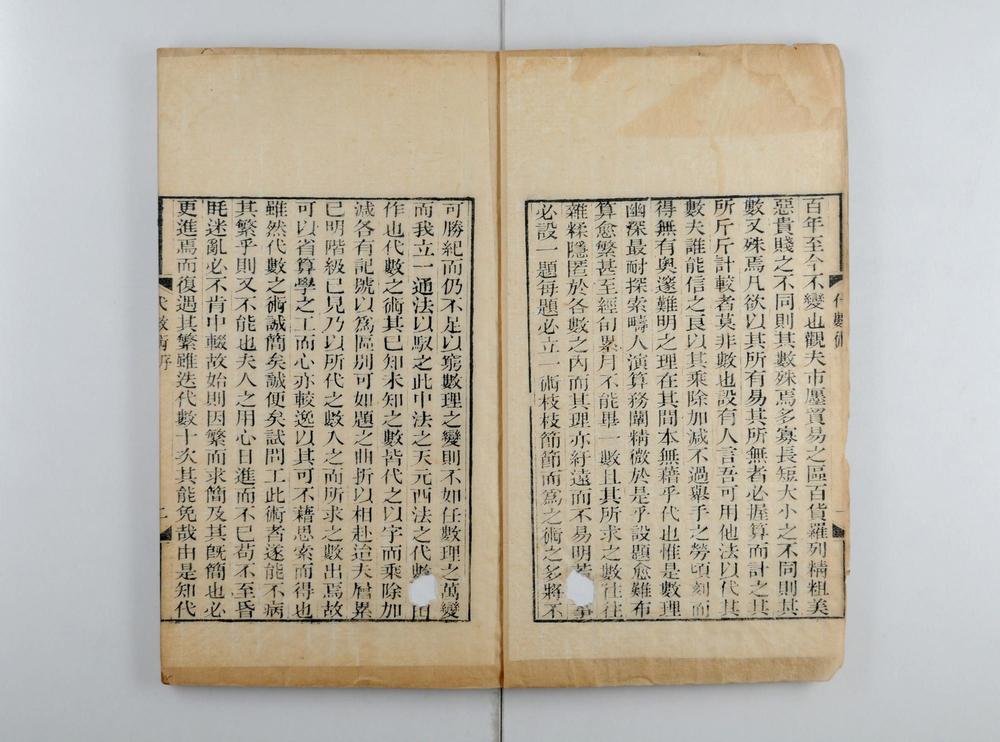 代數術
百年至今不變也觀夫市廛貿易之區百貨羅列精粗美
惡貴賤之不同則其數殊焉多寡長短大小之不同則其
數又殊焉凡欲以其所有易其所無者必握算而計之其
所斤斤計較者莫非數也設有人言吾可用他法以代其
數夫誰能信之良以其乘除加減不過舉手之勞頃刻而
得無有奧邃難明之理在其間本無藉乎代也惟是數理
幽深最耐探索疇人演算務闡精微於是乎設題愈難布
算愈繁甚至經旬累月不能畢一數且其所求之數往往
雜糅隱匿於各數之內而其理亦紆遠而不易明若事
必設一題每題必立一術枝枝節節而爲之術之多將不
可勝紀而仍不足以窮數理之變則不如任數理之萬變
而我立一通法以馭之此中法之天元西法之代數由
作也代數之術其已知未知之數皆代之以字而乘除加
減各有記號以爲區別可如題之曲折以相赴迨夫層累
已明階級已見乃以所代之數入之而所求之數出焉故
可以省算學之工而心亦較逸以其可不藉思索而得也
雖然代數之術誠簡矣誠便矣試問工此術者遂能不病
其繁乎則又不能也夫人之用心日進而不已苟不至昏
眊迷亂必不肯中輟故始則因繁而求簡及其旣簡也必
更進焉而復遇其繁雖迭代數十次其能免哉由是知代
代數術序
二